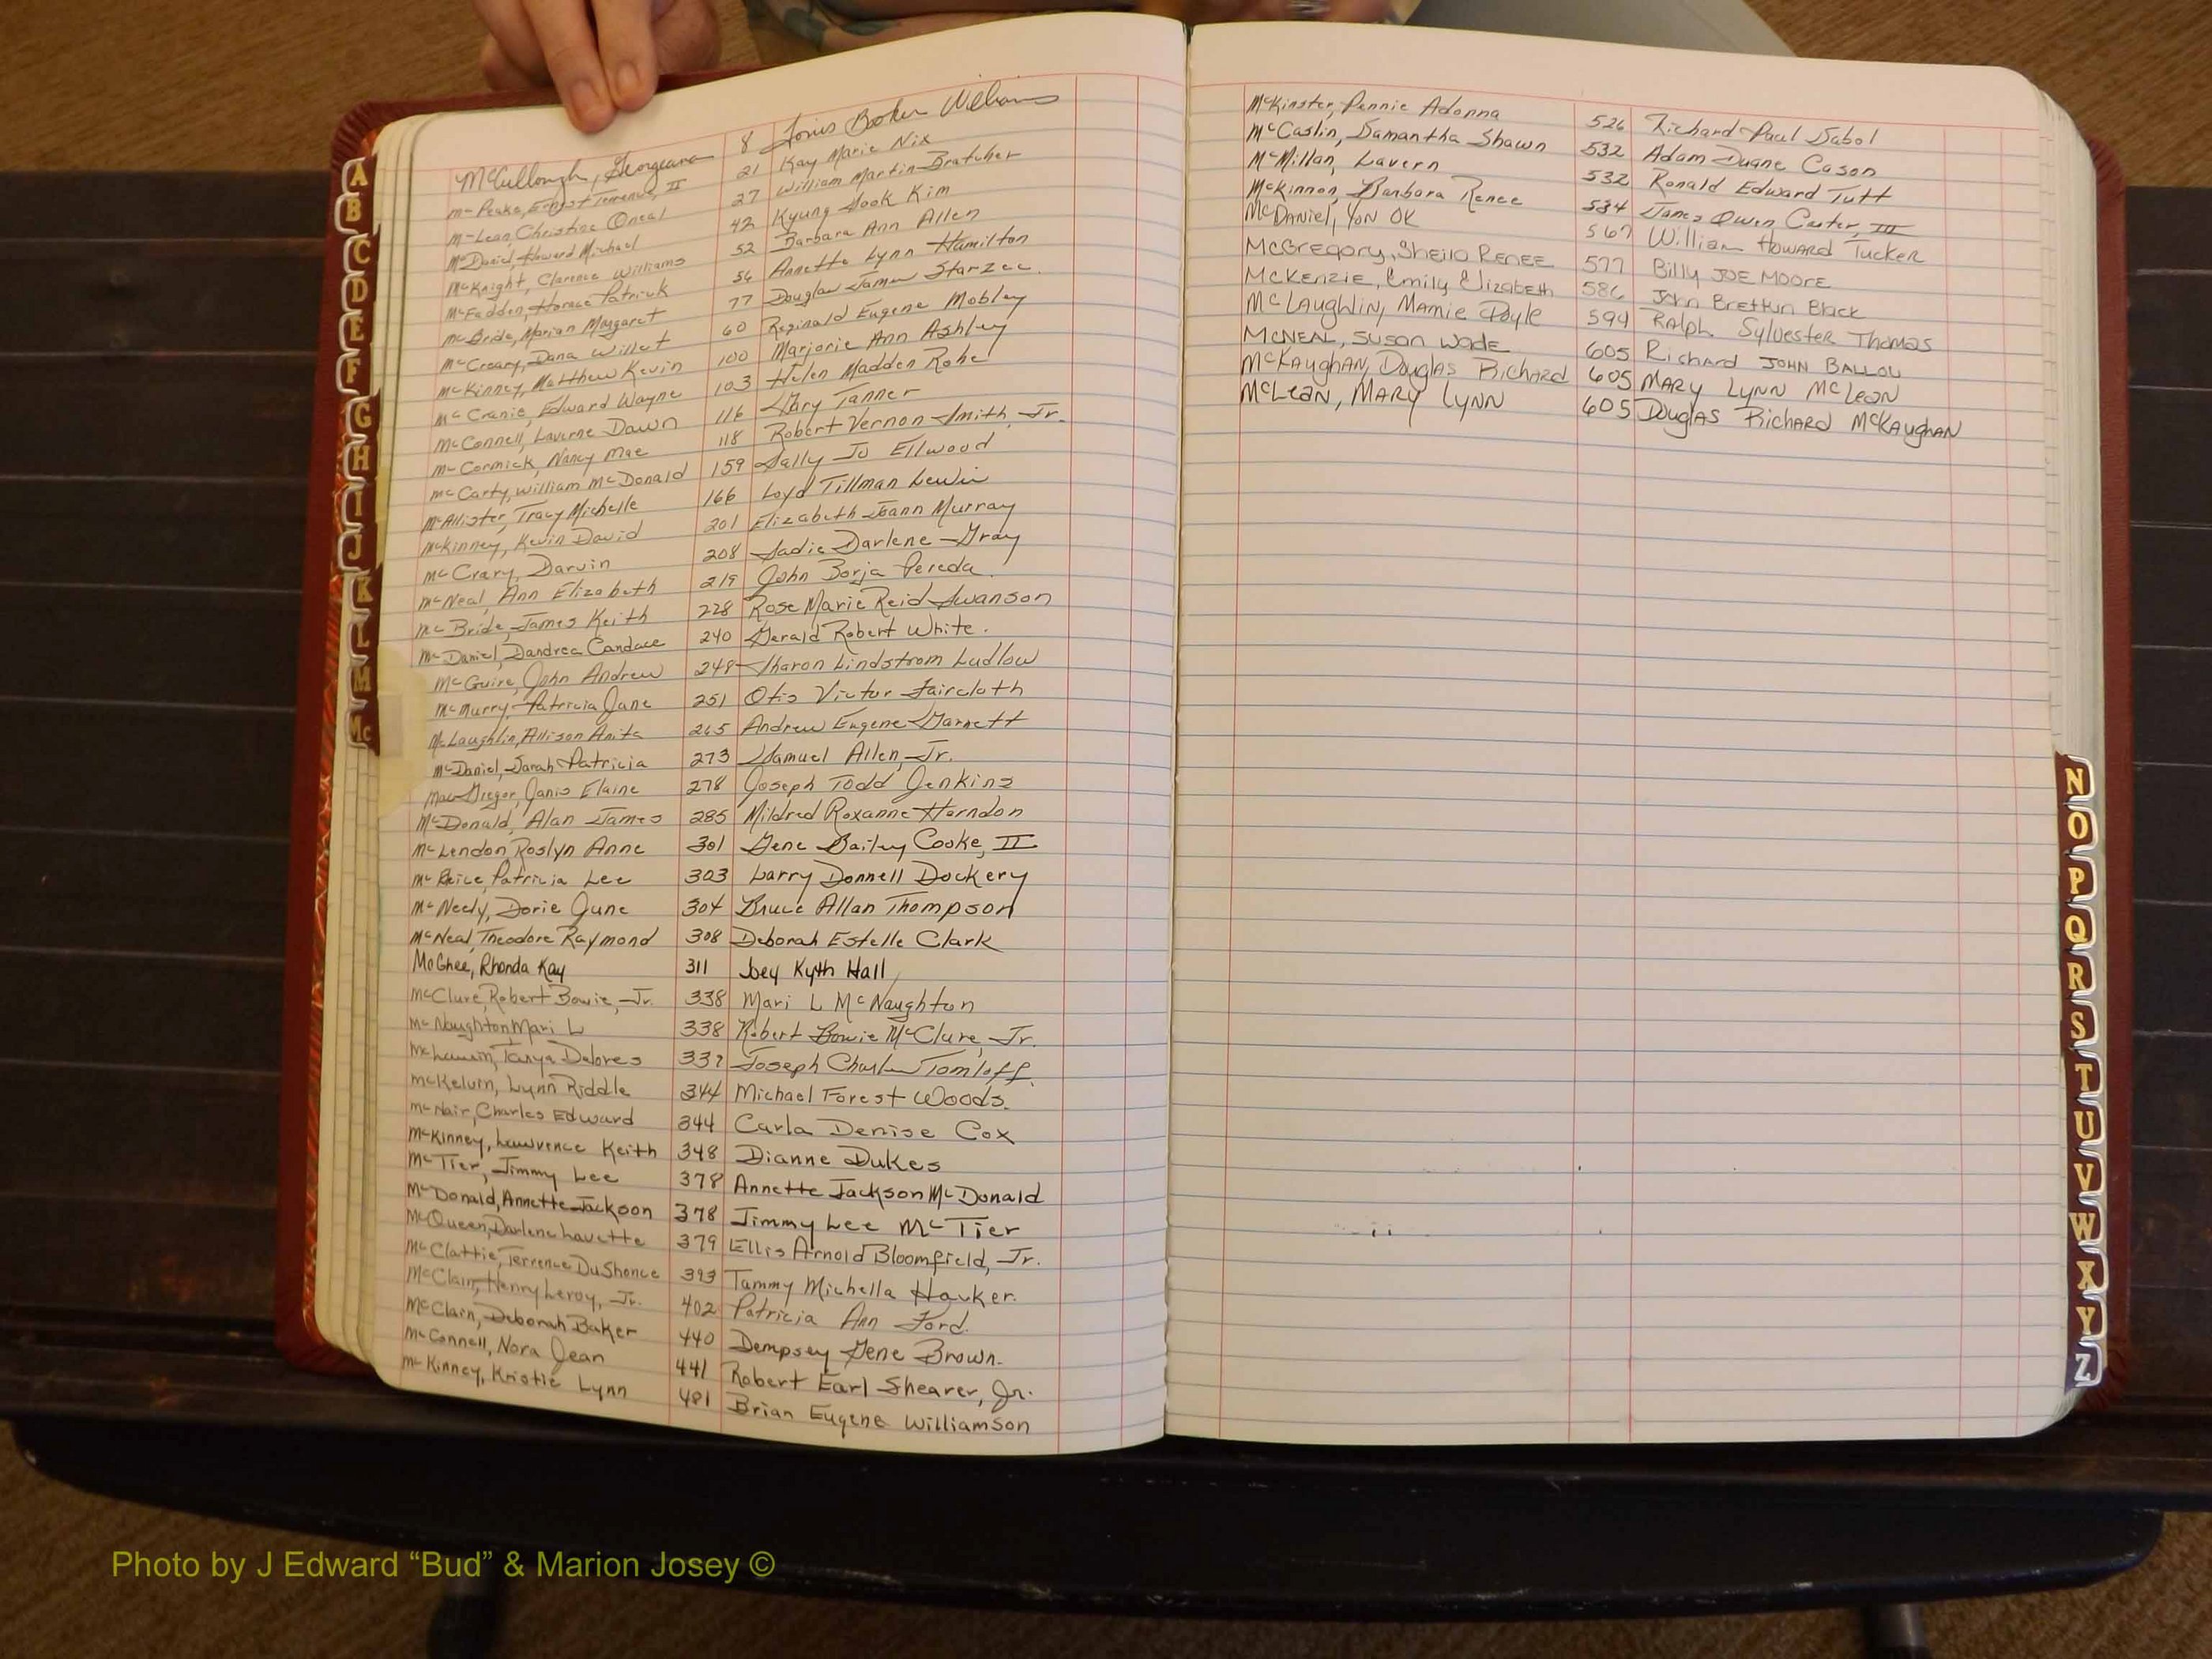 McCullough, Georgeann 8 Louis Booker Williams
McPeake, Ernest Terrence, II 21 Kay Marie Nix
McLean, Christine Oneal 27 William Martin Bratcher
McDaniel, Howard Michael 42 Kyung Sook Kim
McKnight, Clarence Williams 52 Barbara Ann Allen
McFadden, Horace Patrick 56 Annette Lynn Hamilton
McBride, Marian Margaret 77 Douglas James Starzec
McCreary, Dana Willet 60 Reginald Eugene Mobley
McKinney, Matthew Kevin 100 Marjorie Ann Ashley
McCranie, Edward Wayne 103 Helen Madden Rohe
McConnell, Laverne Dawn 116 Gary Tanner
McCormick, Nancy Mae 118 Robert Vernon Smith, Jr.
McCarty, William McDonald 159 Sally Jo Ellwood
McAllister, Tracy Michelle 166 Loyd Tillman Lewis
McKinney, Kevin David 201 Elizabeth Joann Murray
McCrary, Darwin 208 Sadie Darlene Gray
McNeal, Ann Elizabeth 219 John Borja Pereda
McBride, James Keith 228 Rose Marie Reid Swanson
McDaniel, Dandrea Candace 240 Gerald Robert White.
McGuire, John Andrew 248 Sharon Lindstrom Ludlow
McMurry, Patricia Jane 251 Otis Victor Faircloth
McLaughlin, Allison Anita 265 Andrew Eugene Garnett
McDaniel, Sarah Patricia 273 Samuel Allen, Jr.
MacGregor, Janis Elaine 278 Joseph Todd Jenkins
McDonald, Alan James 285 Mildred Roxanne Herndon
McLendon Roslyn Anne 301 Gene Bailey Cooke, II
McReice, Patricia Lee 303 Larry Donnell Dockery
McNeely, Dorie June 304 Bruce Allan Thompson
McNeal, Theodore Raymond 308 Deborah Estelle Clark
McGhee, Rhonda Kay 311 Joey Kyth Hall
McClure, Robert Bowie, Jr. 338 Mari L McNaughton
McNaughton Mari L 338 Robert Bowie McClure, Jr.
Tanya Delores 339 Joseph Charles Tomloff.
McKelvin, Lynn Riddle 344 Michael Forest Woods.
McNair, Charles Edward 344 Carla Denise Cox
McKinney, Lawrence Keith 348 Dianne Dukes
McTier, Jimmy Lee 378 Annette Jackson McDonald
McDonald, Annette Jackson 378 Jimmy Lee McTier
McQueen, Darlene Lavette 379 Ellis Arnold Bloomfield, Jr.
McClattie, Terrence DuShonce 393 Tammy Michella Hauker.
McClain, Henry Leroy, Jr. 402 Patricia Ann Ford.
McClain, Deborah Baker 440 Dempsey Gene Brown.
McConnell, Nora Jean 441 Robert Earl Shearer, Jr.
McKinney, Kristie Lynn 481 Brian Eugene Williamson
McKinster, Pennie Adonna 526 Richard Paul Sabol
McCaslin, Samantha Shawn 532 Adam Duane Cason
McMillan, Lavern 532 Ronald Edward Tutt
McKinnon, Barbara Renee 534 James Owen Carter, III
McDaniel, Yon OK 567 William Howard Tucker
McGregory, Sheila Renee 577 Billy Joe Moore
McKenzie, Emily Elizabeth 586 John Brettun Black
McLaughlin, Mamie Doyle 594 Ralph Sylvester Thomas
McNeal, Susan Wade 605 Richard John Ballou
McKaughan, Douglas Richard 605 Mary Lynn McLean
McLean, Mary Lynn 605 Douglas Richard McKaughan
A
B
C
D
E
F
G
H
I
J
K
L
M
Mc
N
O
P
Q
R
S
T
U
V
W
X
Y
Z
Photo by J Edward “Bud” & Marion Josey ©